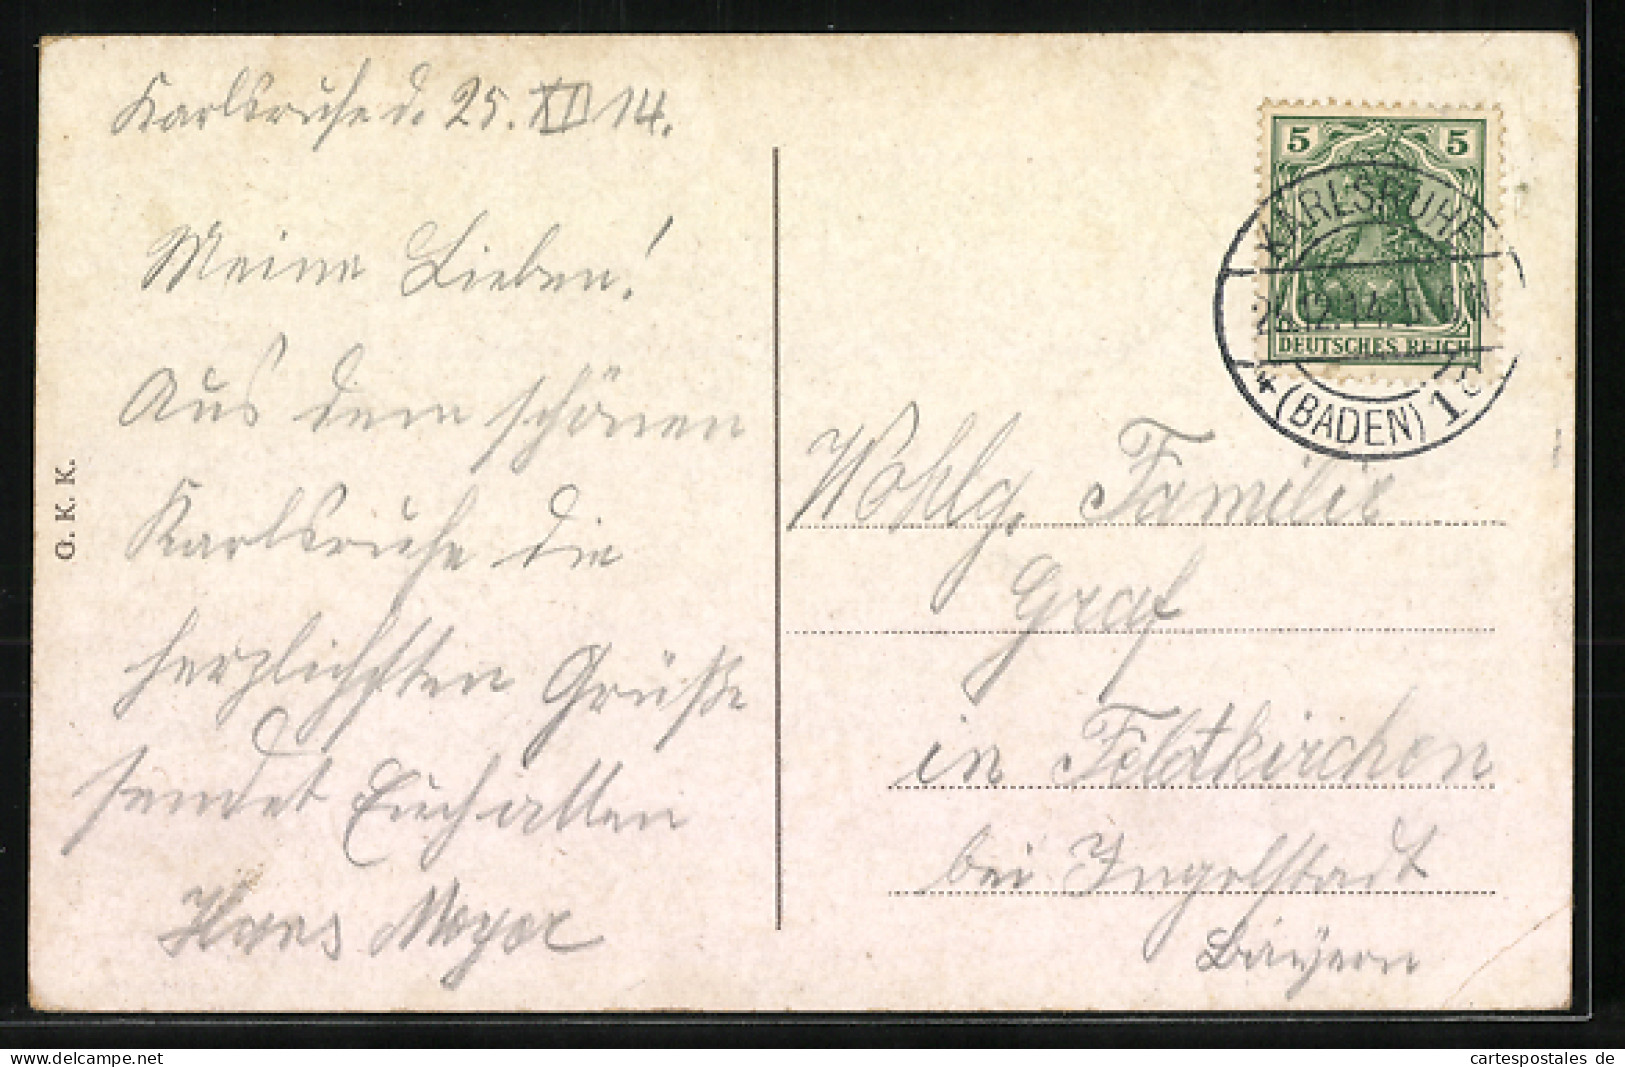 Karlsruhe d. 25. XII 14.
Meine Lieben!
Aus dem schönen
Karlsruhe die
herzlichsten Grüße
sendet Euch allen
Hans Meyer
O. K. K.
5 5
DEUTSCHES REICH
KARLSRUHE
12.14.
(BADEN) 1
Wohlg. Familie
Graf
in Feldkirchen
bei Ingolstadt
Bayern
cartespostales de